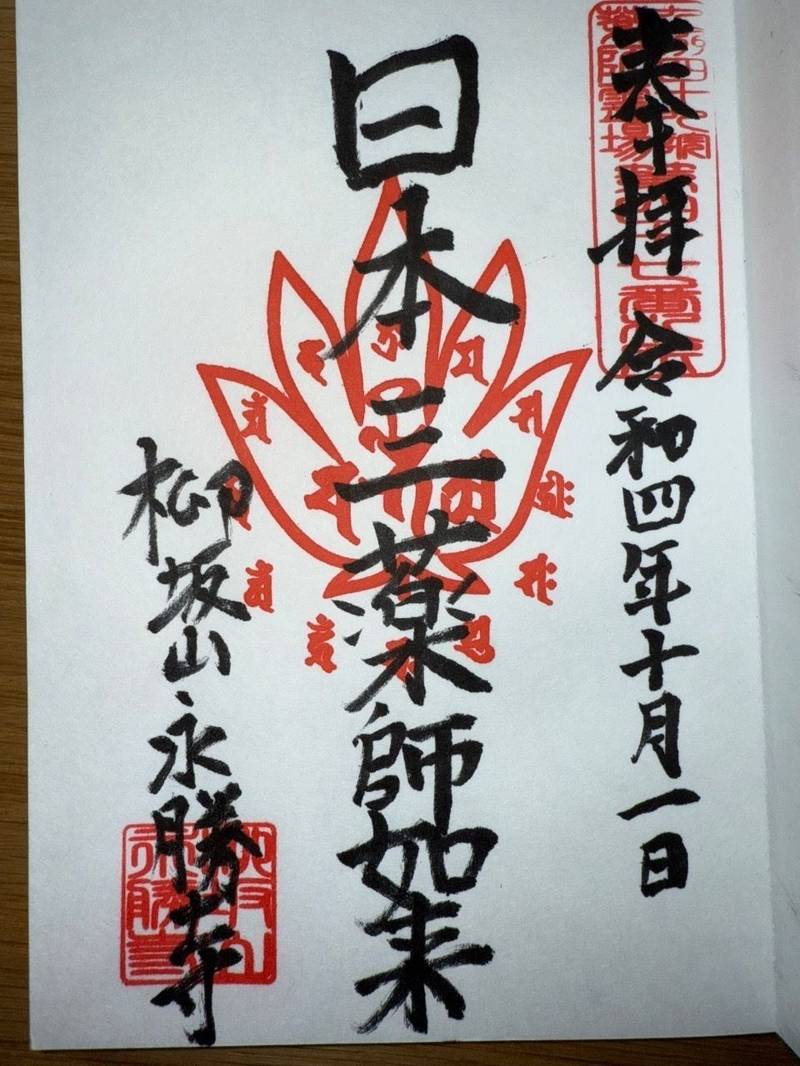 奉拝 令和四年十月一日
日本三薬師如来
柳坂山永勝寺